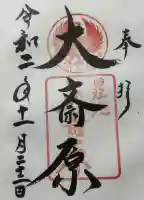 奉拝
大斎原
令和二年十一月二十二日